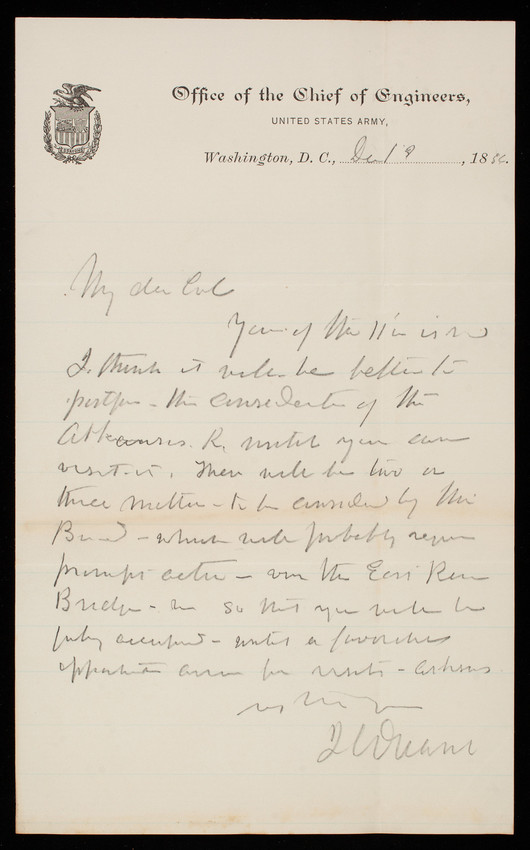 Office of the Chief of Engineers,
UNITED STATES ARMY,
Washington, D. C., 1886.
My dear Col
Yours of the 11th is rec
I think it will be better to
postpone the consideration of the
Arkansas R. until you can
visit it. There will be two or
three matters to be considered by the
Board - which will probably require
prompt action - viz the East River
Bridge - so that you will be
fully occupied - until a favorable
opportunity for visit - Arkansas